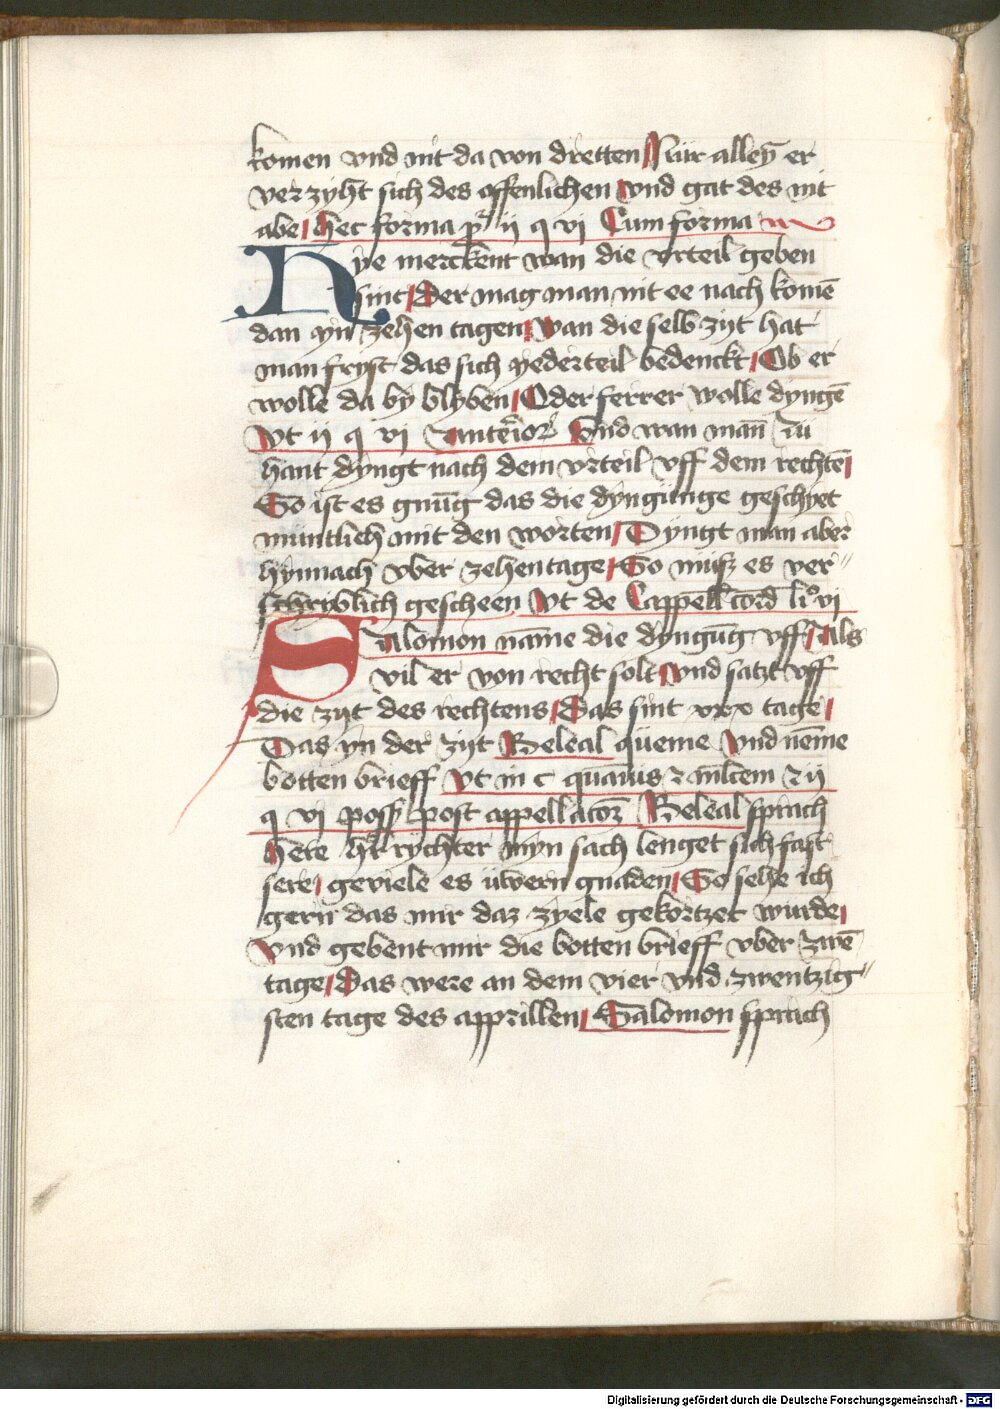 komen vnd nit da von dretten Nür alleyn̄ er
verzyht sich des offenlichen vnd gat des nit
abe hec forma p ij q vj Cum forma
Hye merckent wan die vrteil geben
sint Der mag man nit ee nach komē
dan yn zehen tagen wan die selb zyt hat
man fryst das sich yederteil bedenckt Ob er
wolle da by blyben Oder ferrer wolle dyngē
Vt ij q vj anterior Vnd wan man̄ zü
hant dyngt nach dem vrteil vff dem rechtē
So ist es gnüg das die dyngünge geschyet
müntlich mit den worten Dyngt man aber
hynnach vber zehen tage So müsz es ver〃
schriblich gescheen Vt de Cappell cord liº vj
Salomon name die dyngūg vff Als
vil er von recht solt vnd satzt vff
die zyt des rechtens Das sint xxx tage
Das yn der zyt Beleal queme Vnd nēme
botten brieff Vt in c quamis ij
q vj poss post appellatoz Beleal sprach
Here her rychter myn sach lenget sich fast
sere geviele es üwern gnaden So sehe ich
gern das mir daz zyele gekortzet wurde
Vnd gebent mir die botten brieff vber zwē
tage Das were an dem vier vnd zwentzig〃
sten tage des apprillen Salomon sprach
Digitalisierung gefördert durch die Deutsche Forschungsgemeinschaft - DFG